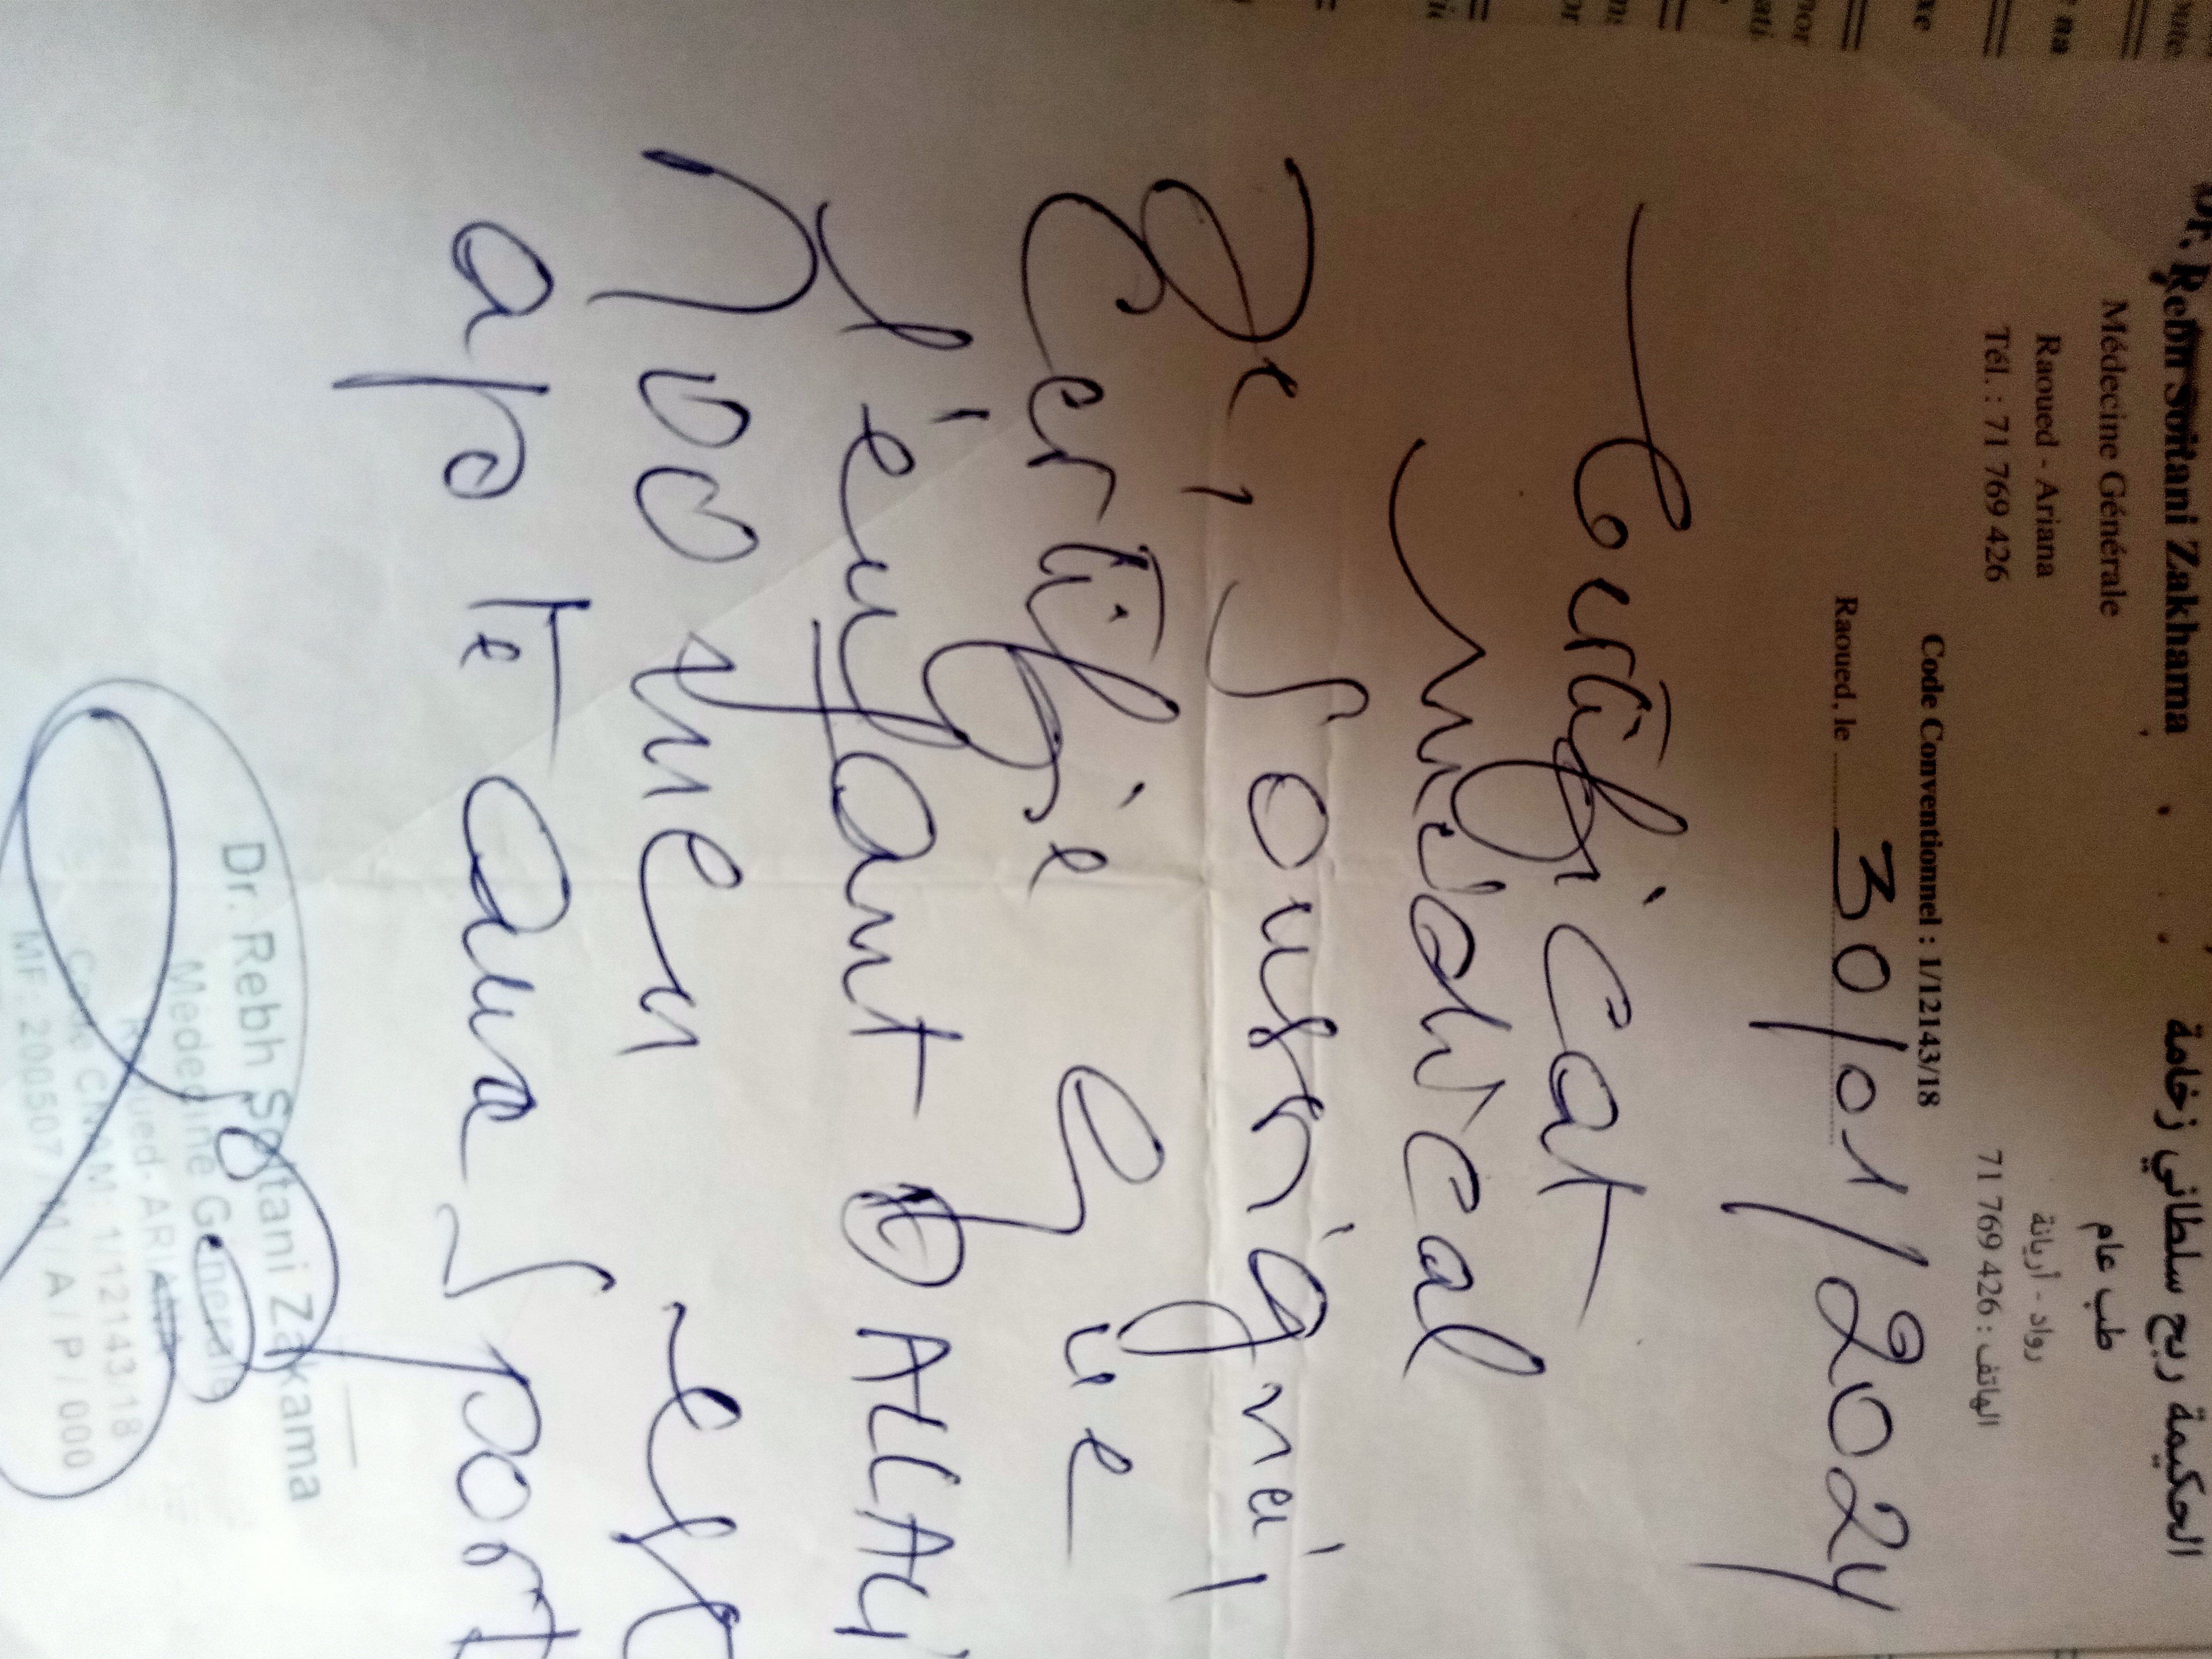 Dr. Rebh Soltani Zakhama
الحكيمة ربح سلطاني زخامة
Médecine Générale
طب عام
Raoued - Ariana
رواد - أريانة
Tél. : 71 769 426
الهاتف : 426 769 71
Code Conventionnel : 1/12143/18
Raoued, le 30/01/2024
Certificat
médical
Je, soussigné,
certifie que
l'enfant
est
apte aux sport
Dr. Rebh Soltani Zakama
Médecine Générale
Raoued- ARIANA
Code CNAM: 1/12143/18
MF: 2005071 / A / P / 000